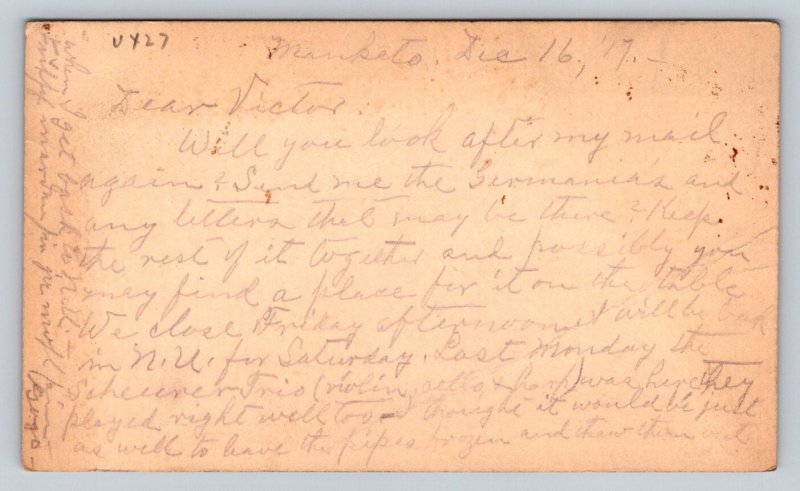 UX27
Mankato, Dec 16, '17.-
Dear Victor:
Will you look after my mail
again? Send me the Germania's and
any letters that may be there? Keep
the rest of it together and possibly you
may find a place for it on the table
We close Friday afternoon & I will be back
in N.U. for Saturday. Last Monday the
Scheurer Trio (violin, cello & harp) was here they
played right well too - I thought it would be just
as well to leave the pipes frozen and thaw them out
when I get back to N.U. -